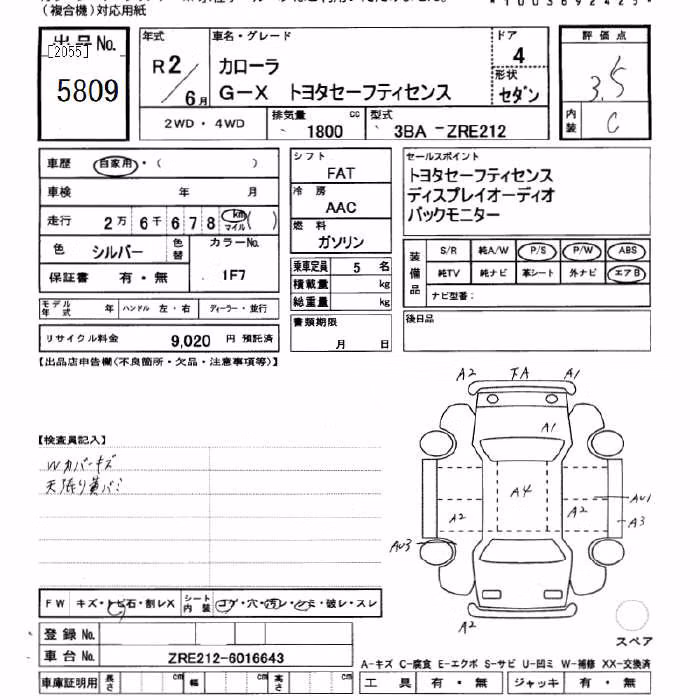 (複合機)対応用紙
*1003692425*
出品No.
[2055]
5809
年式
R2/6月
車名・グレード
カローラ
G-X トヨタセーフティセンス
ドア
4
形状
セダン
2WD・4WD
排気量
1800 cc
型式
3BA-ZRE212
評価点
3.5
内装
C
車歴 自家用・( )
車検 年 月
走行 2万6千678 km マイル ( )
色 シルバー 色替 カラーNo. 1F7
保証書 有・無
モデル年式 年 ハンドル 左・右 ディーラー・並行
リサイクル料金 9,020 円 預託済
シフト
FAT
冷房
AAC
燃料
ガソリン
乗車定員 5 名
積載量 kg
総重量 kg
書類期限
月 日
セールスポイント
トヨタセーフティセンス
ディスプレイオーディオ
バックモニター
装備品
S/R 純A/W P/S P/W ABS
純TV 純ナビ 革シート 外ナビ エアB
ナビ型番:
後日品
【出品店申告欄(不良箇所・欠品・注意事項等)】
【検査員記入】
Wカバーキズ
天張り黄バミ
A2 FA A1
A1
A4
A2 A2
AU1
A3
AU3
A2
スペア
FW キズ・トビ石・割レX
シート内装 コゲ・穴・汚レ・シミ・破レ・スレ
登録No.
車台No. ZRE212-6016643
車庫証明用 長さ cm 幅 cm 高さ cm
A-キズ C-腐食 E-エクボ S-サビ U-凹ミ W-補修 XX-交換済
工具 有・無 ジャッキ 有・無